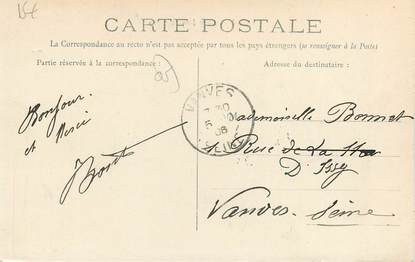 CARTE POSTALE
La Correspondance au recto n'est pas acceptée par tous les pays étrangers (se renseigner à la Poste)
Partie réservée à la correspondance :
Adresse du destinataire :
Bonjour
et Merci
VANVES
SEINE
Mademoiselle Bonnet
Rue de La
D'Issy
Vanves. Seine